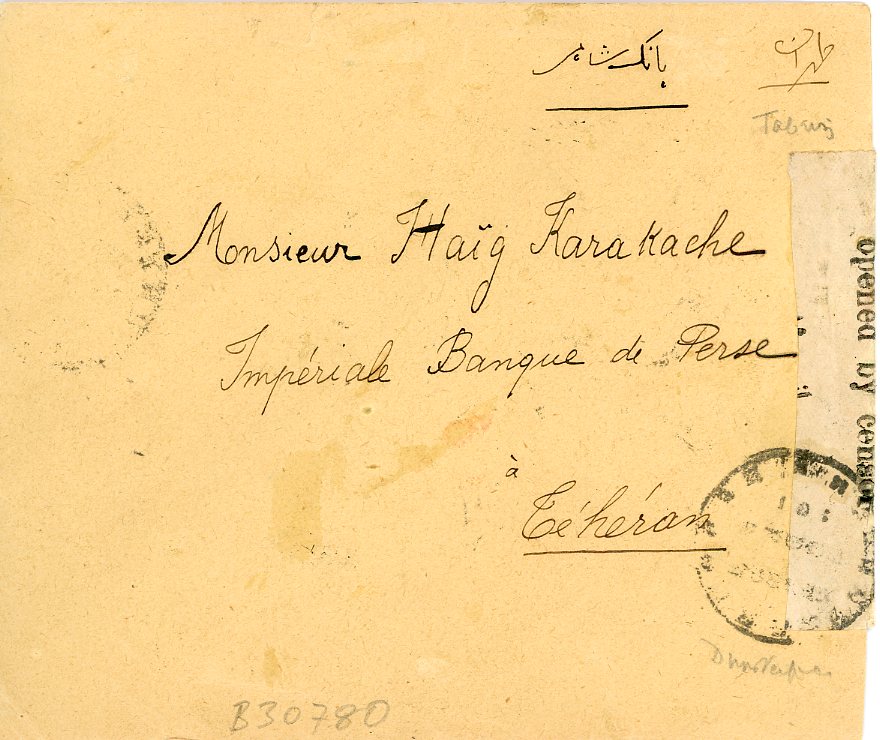 بانک شاهی
طهران
Monsieur Haïg Karakache
Impériale Banque de Perse
à
Téhéran
opened by censor
B30780